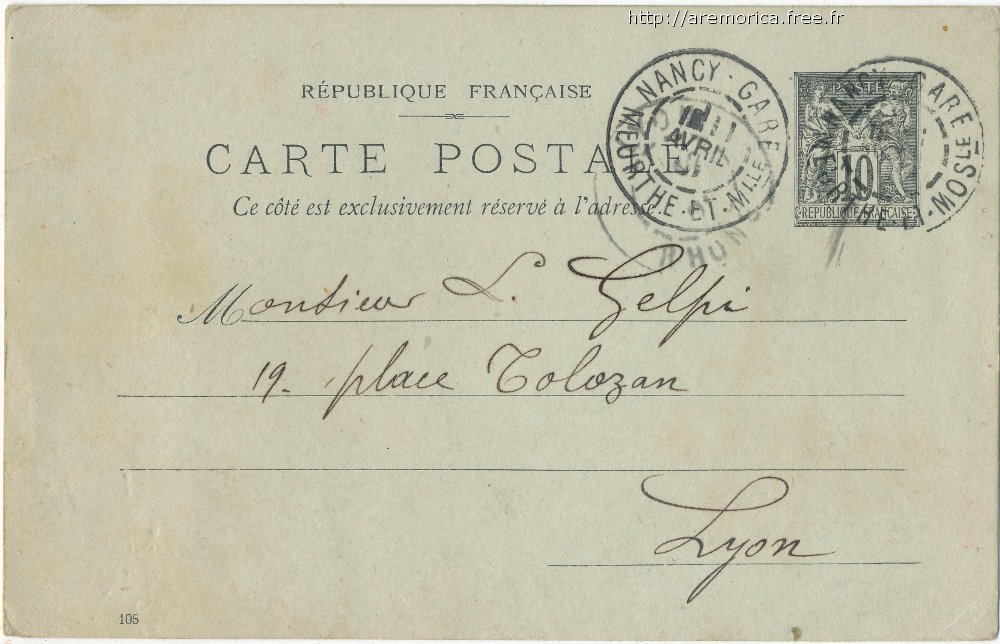 http://aremorica.free.fr
RÉPUBLIQUE FRANÇAISE
CARTE POSTALE
Ce côté est exclusivement réservé à l'adresse.
NANCY - GARE
AVRIL
MEURTHE-ET-MLLE
RHONE
POSTES
10
REPUBLIQUE FRANÇAISE
Monsieur L. Gelpi
19. place Tolozan
Lyon
105